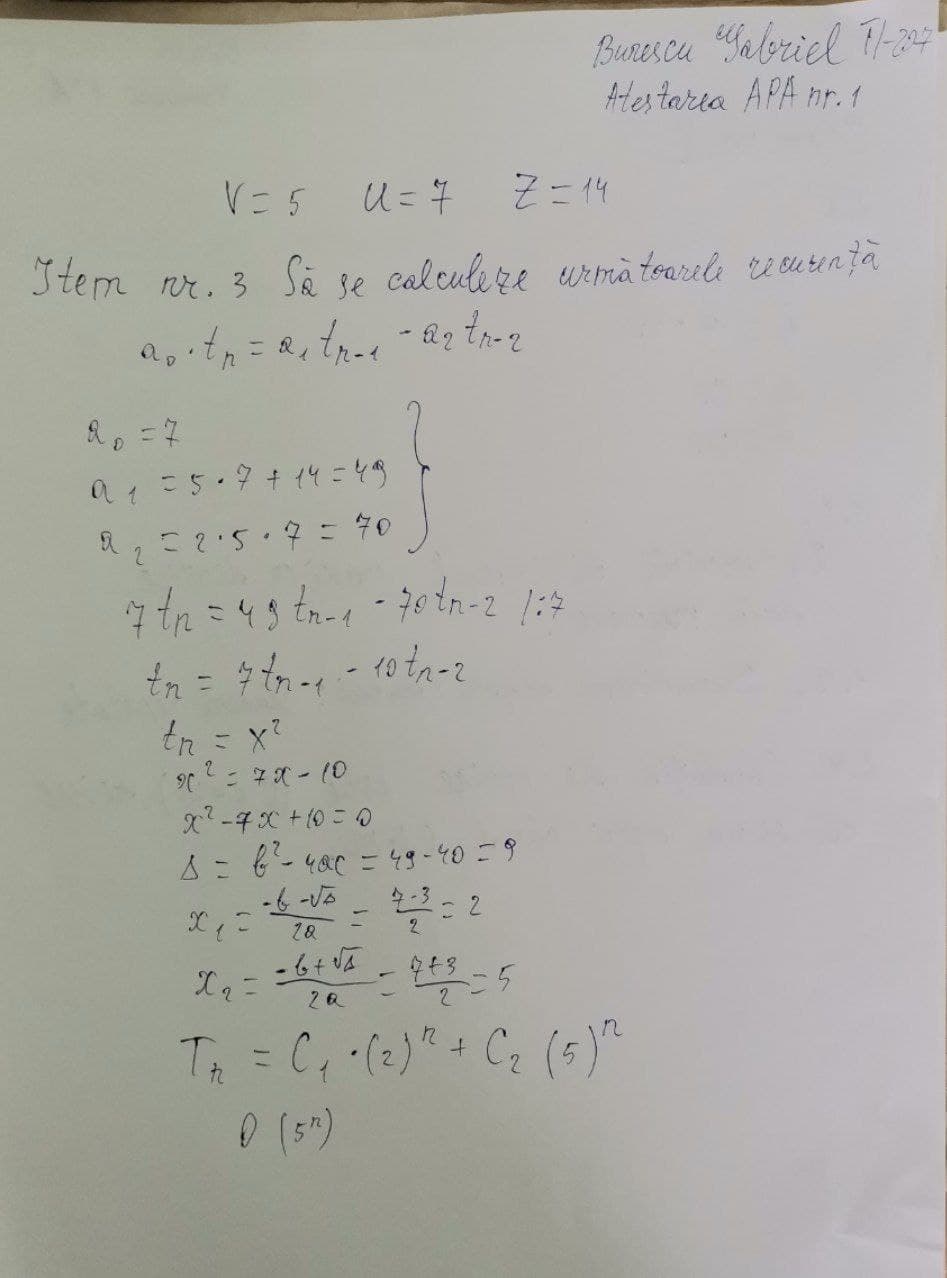 Burescu Gabriel TI-227
Atestarea APA nr. 1
V = 5 U = 7 Z = 14
Item nr. 3 Să se calculeze următoarele recurență
a₀ · tₙ = a₁ tₙ₋₁ - a₂ tₙ₋₂
a₀ = 7
a₁ = 5 · 7 + 14 = 49
a₂ = 2 · 5 · 7 = 70
7 tₙ = 49 tₙ₋₁ - 70 tₙ₋₂ |:7
tₙ = 7 tₙ₋₁ - 10 tₙ₋₂
tₙ = x²
x² = 7x - 10
x² - 7x + 10 = 0
Δ = b² - 4ac = 49 - 40 = 9
x₁ = (-b - √Δ)/2a = (7-3)/2 = 2
x₂ = (-b + √Δ)/2a = (7+3)/2 = 5
Tₙ = C₁ · (2)ⁿ + C₂ (5)ⁿ
O (5ⁿ)